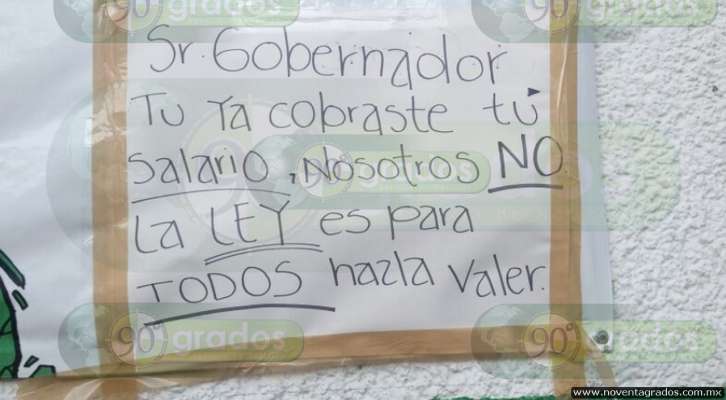 Sr. Gobernador
Tu Ya cobraste tú
Salario, Nosotros NO.
La LEY es para
TODOS hazla Valer.
90° grados
90° grados
90° grados
90° grados
www.noventagrados.com.mx